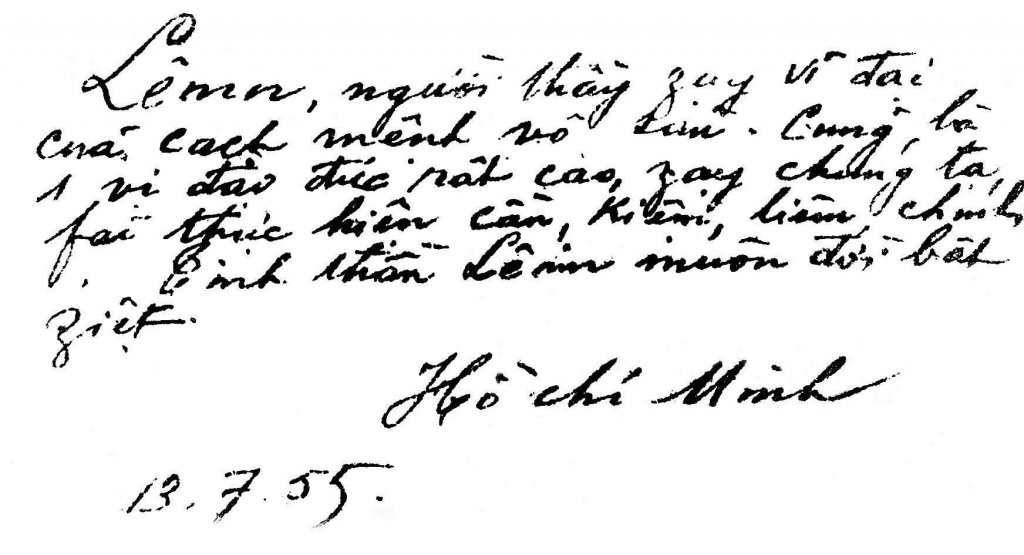 Lênin, người thầy zạy vĩ đại
của cách mệnh vô sản. Cũng là
1 vị đạo đức rất cao, zạy chúng ta
fải thực hiện cần, kiệm, liêm chính
. Tinh thần Lênin muôn đời bất
ziệt.
Hồ chí Minh
13.7.55.